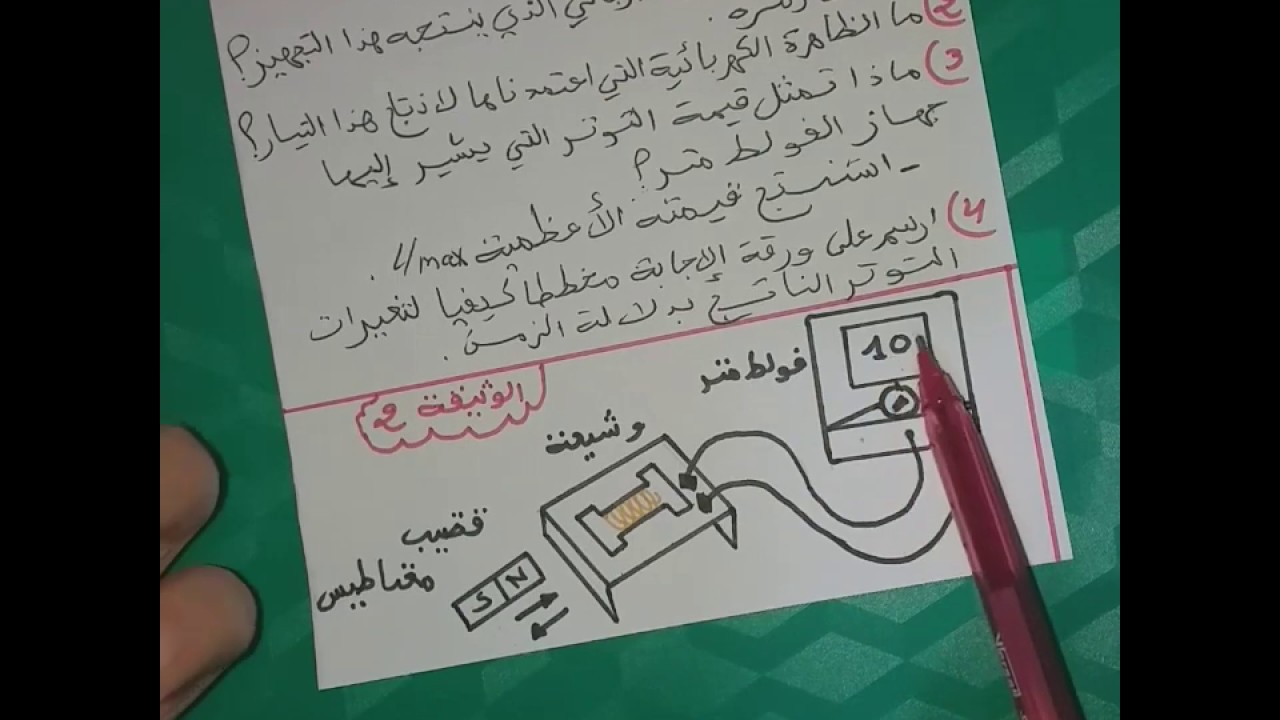 الذي ينتجه هذا التجهيز؟
2) ما الظاهرة الكهربائية التي اعتمدناها لانتاج هذا التيار؟
3) ماذا تمثل قيمة التوتر التي يشير إليها
جهاز الفولط متر؟
- استنتج قيمته الأعظمية Umax .
4) ارسم على ورقة الإجابة مخططا كيفيا لتغيرات
التوتر الناتج بدلالة الزمن .
الوثيقة 2
فولط متر
10
وشيعة
قضيب
مغناطيس
S N